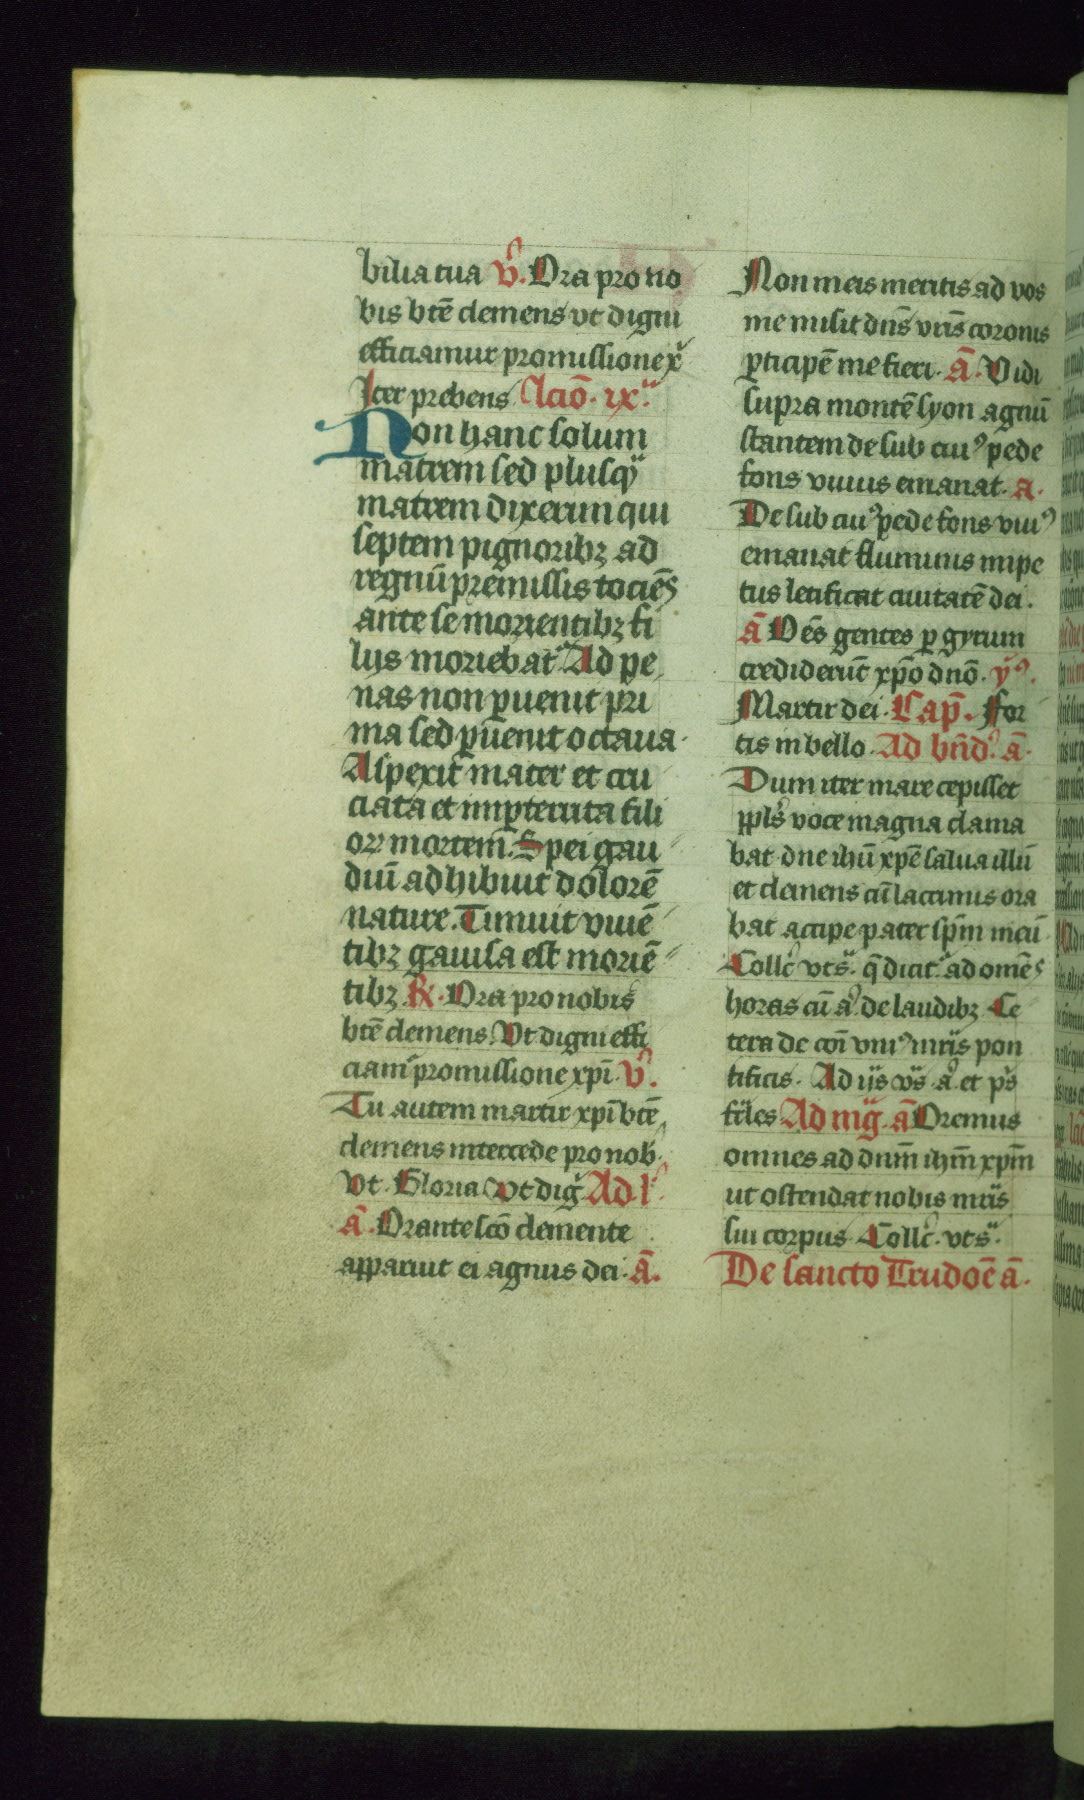 bilia tua v̊. Ora pro no
bis btē clemens vt digni
efficiamur promissione xͥ
Iter prebens. Lciō. ixᵃ.
Non hanc solum
matrem sed plusqᵃ
matrem dixerim qui
septem pignoribꝫ ad
regnū premissis tociēs
ante se morientibꝫ fi
lijs moriebatᷣ Ad pe
nas non ꝑuenit pri
ma sed ꝑuenit octaua.
Aspexit mater et cru
ciata et imꝑterrita fili
oꝝ mortem. Spei gau
diū adhibuit dolorē
nature. Timuit viuē
tibꝫ gauisa est moriē
tibꝫ. ℟. Ora pro nobis
btē clemens. Vt digni effi
ciamᷣ promissione xpī. v̊.
Tu autem martir xpī btē
clemens intercede pro nob.
Vt. Gloria. vt dig̃. Ad l
ā. Orante scō clemente
apparuit ei agnus dei. ā.
Non meis meritis ad vos
me misit dn̄s vrīs coronis
ꝑticipē me fieri. ā. Vidi
supra montē syon agnū
stantem de sub cuiꝰ pede
fons viuus emanat. a.
De sub cuiꝰ pede fons viuꝰ
emanat fluminis impe
tus letificat ciuitatē dei.
ā Oēs gentes ꝑ gyrum
crediderūt xp̄o dnō. ỹꝰ.
Martir dei. Cap̄. For
tis in bello. Ad bn̄dᷤ. ā.
Dum iter mare cepisset
ppl̄s voce magna clama
bat dn̄e ihū xp̄e salua illū
et clemens cū lacrimis ora
bat accipe pater sp̄m meū
Collᷤ vtsᵃ. q̄ dicitᷣ ad omēs
horas cū ā de laudibꝫ Ce
tera de cōi vniꝰ mr̄is pon
tificis. Ad ijs vs̄ ā et p̄s
fēles Ad mg̃. ā Oremus
omnes ad dnm̄ ihm̄ xpm̄
ut ostendat nobis mr̄is
sui corpus. Collᷤ. vtsᵃ.
De sancto Trudoē ā.